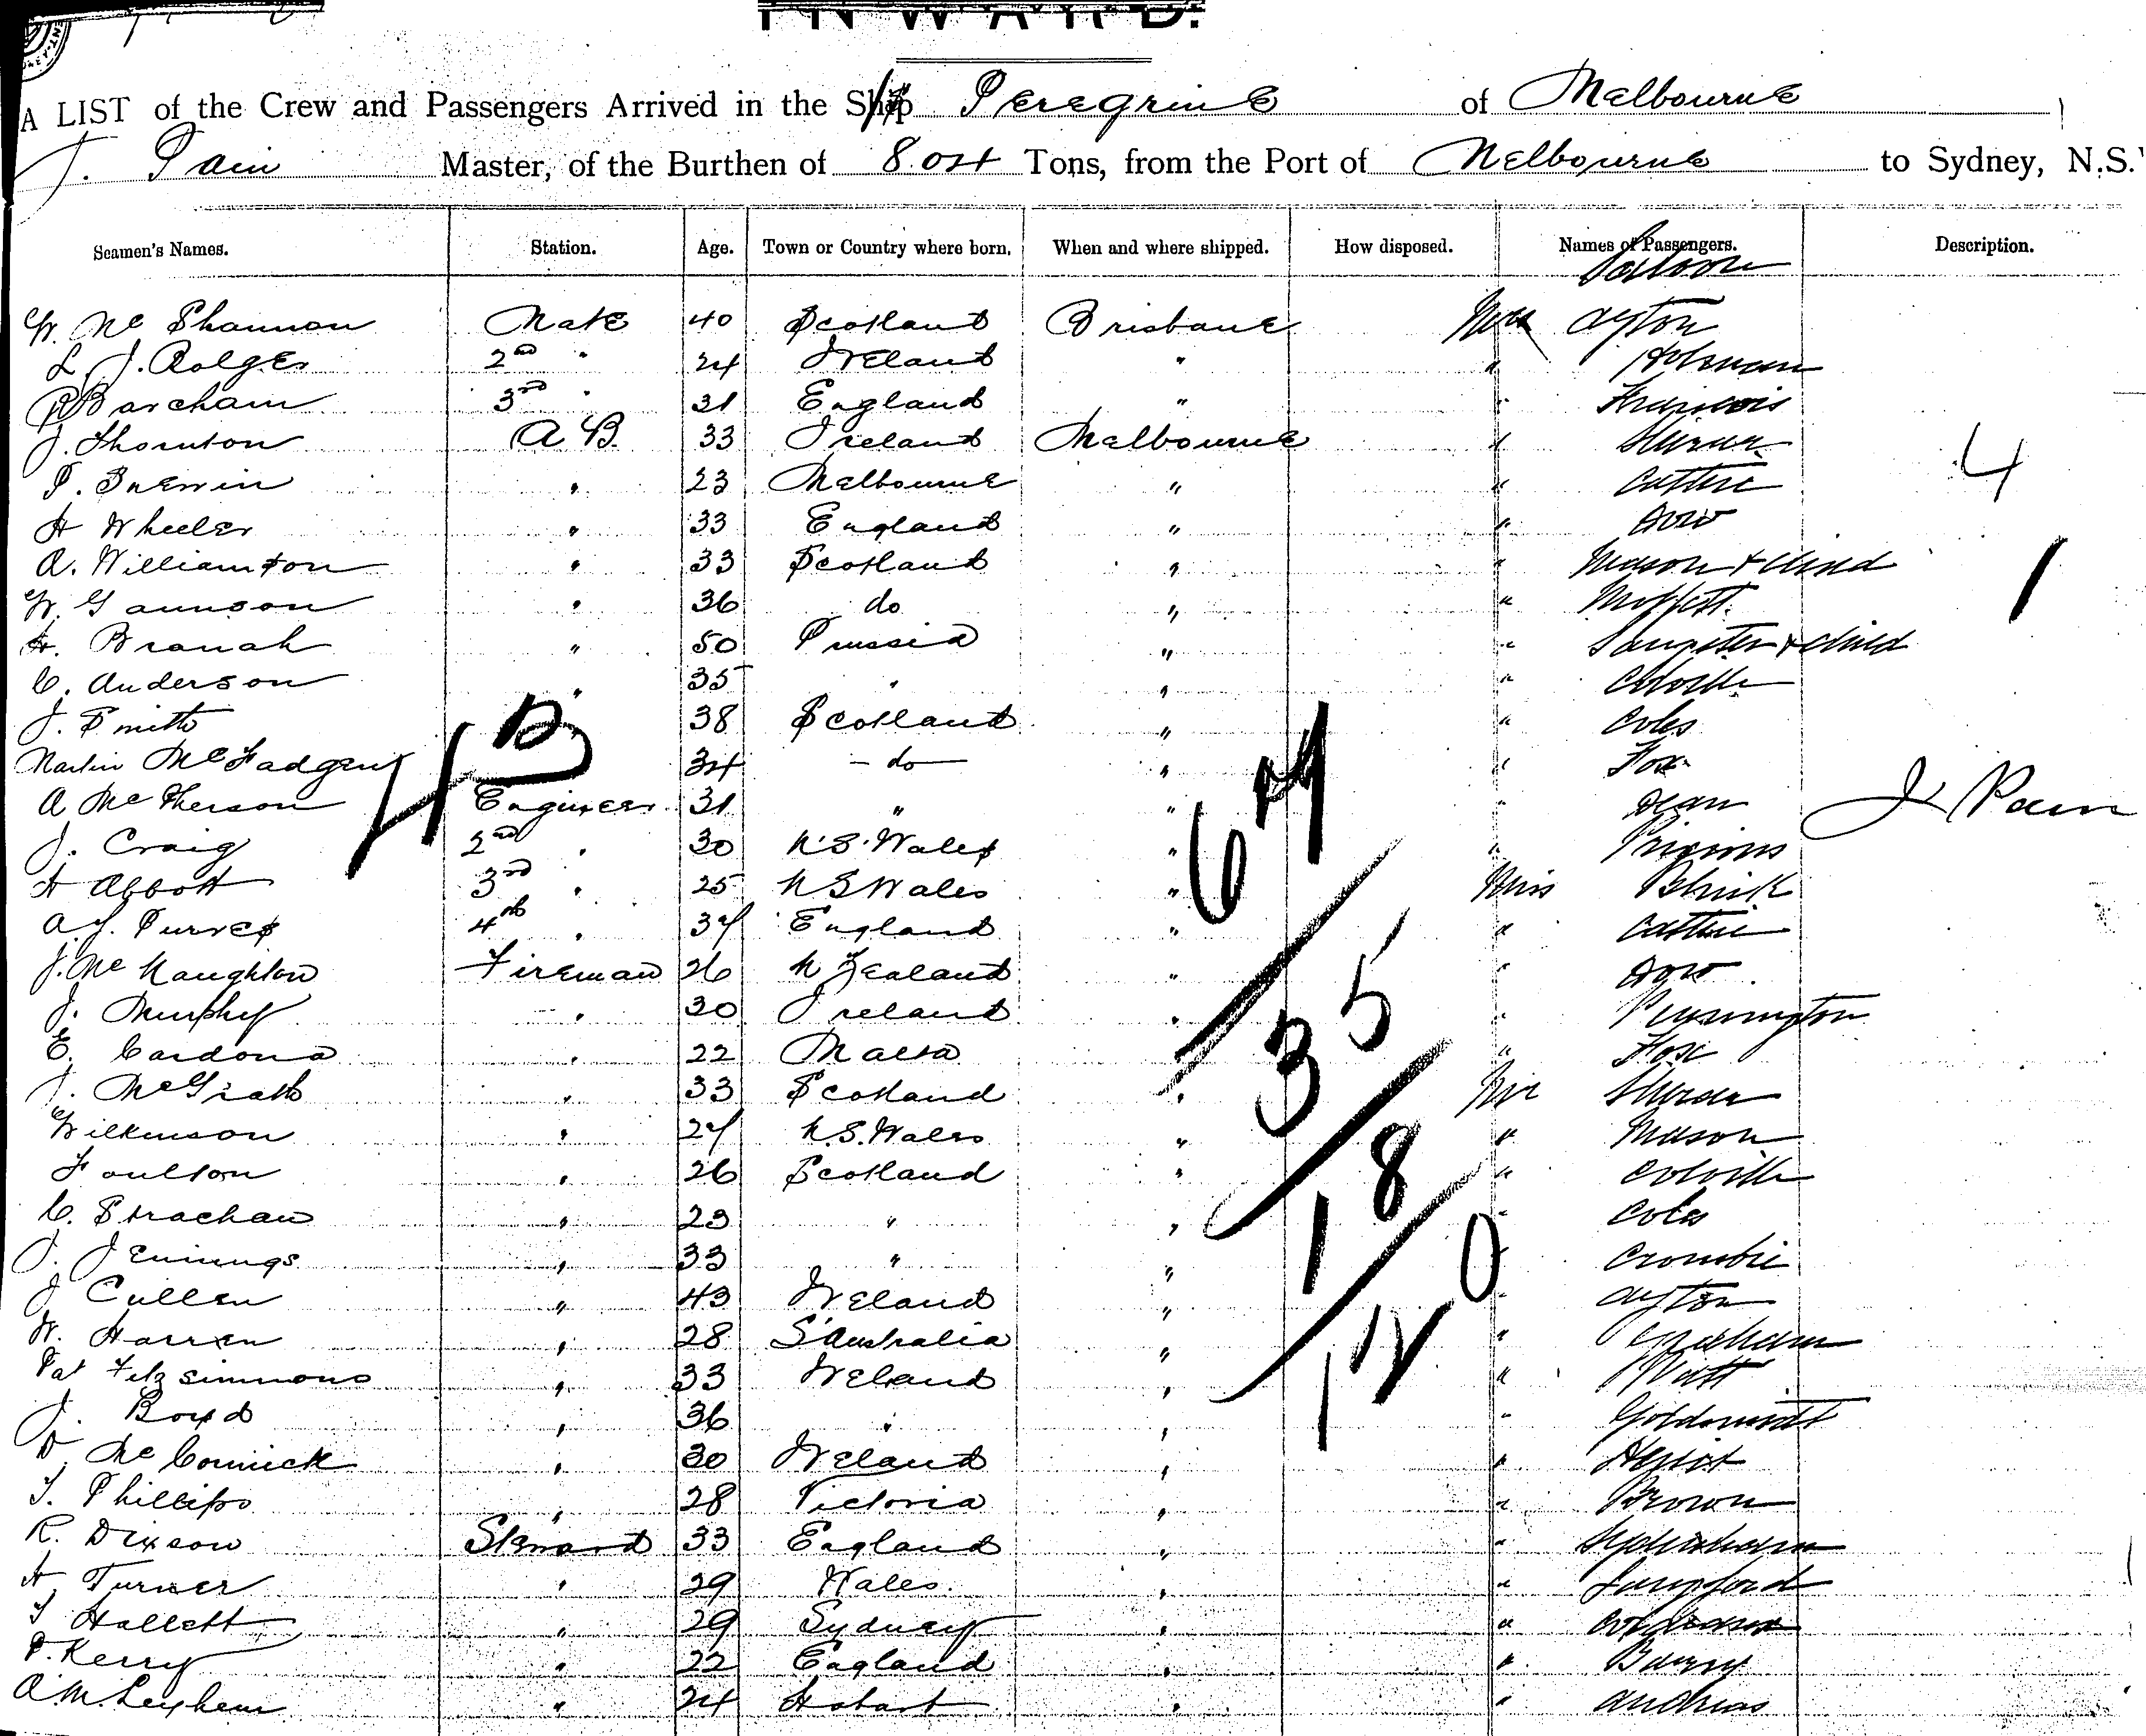 INWARD.
A LIST of the Crew and Passengers Arrived in the Ship Peregrine of Melbourne
J. Pain Master, of the Burthen of 804 Tons, from the Port of Melbourne to Sydney, N.S.
Seamen's Names. Station. Age. Town or Country where born. When and where shipped. How disposed. Names of Passengers. Description.
Saloon
W. Mc Shannon Mate 40 Scotland Brisbane Mrs Ayton
L. J. Bolger 2nd " 24 Ireland " " Holsman
Barcham 3rd " 31 England " "
J. Thornton A B. 33 Ireland Melbourne "
P. " 23 Melbourne " "
H Wheeler " 33 England " "
A. Williamson " 33 Scotland " " Mason & child
W. Gunnson " 36 do " " Moffett.
H. Branah " 50 Prussia " " Sangster & child
C. Anderson " 35 " " " Colville
J. Smith 38 Scotland " " Coles
Martin McFadgen 34 - do - " " Fox
A McPherson Engineer 31 " " " Dean
J. Craig 2nd " 30 N.S. Wales " "
H Abbott 3rd " 25 N S Wales " Miss
A.J. Purves 4th " 37 England " "
J. Mc Naughton Fireman 26 N Zealand " "
J. Murphy " 30 Ireland " " Pennington
E. Cardona " 22 Malta " " Fox
J. McGrath " 33 Scotland " Mr
Wilkinson " 27 N.S. Wales " " Mason
Foulton " 26 Scotland " " Colville
C. Strachan " 23 " " " Coles
J. Jennings " 33 " " " Crombie
J Cullen " 43 Ireland " " Ayton
W. Harren " 28 S Australia " "
Pat Fitzsimmons " 33 Ireland " "
J. Boyd " 36 " " " Goldsmidt
D. McCormick " 30 Ireland " " Heriot
T. Phillips " 28 Victoria " " Brown
R. Dixson Steward 33 England " "
H. Turner " 29 Wales. " " Langford
T Hallett " 29 Sydney " "
P. Kerry " 22 England " " Barry
A. M. " 24 Hobart " " Andrews
4
1
J Pain
35
18